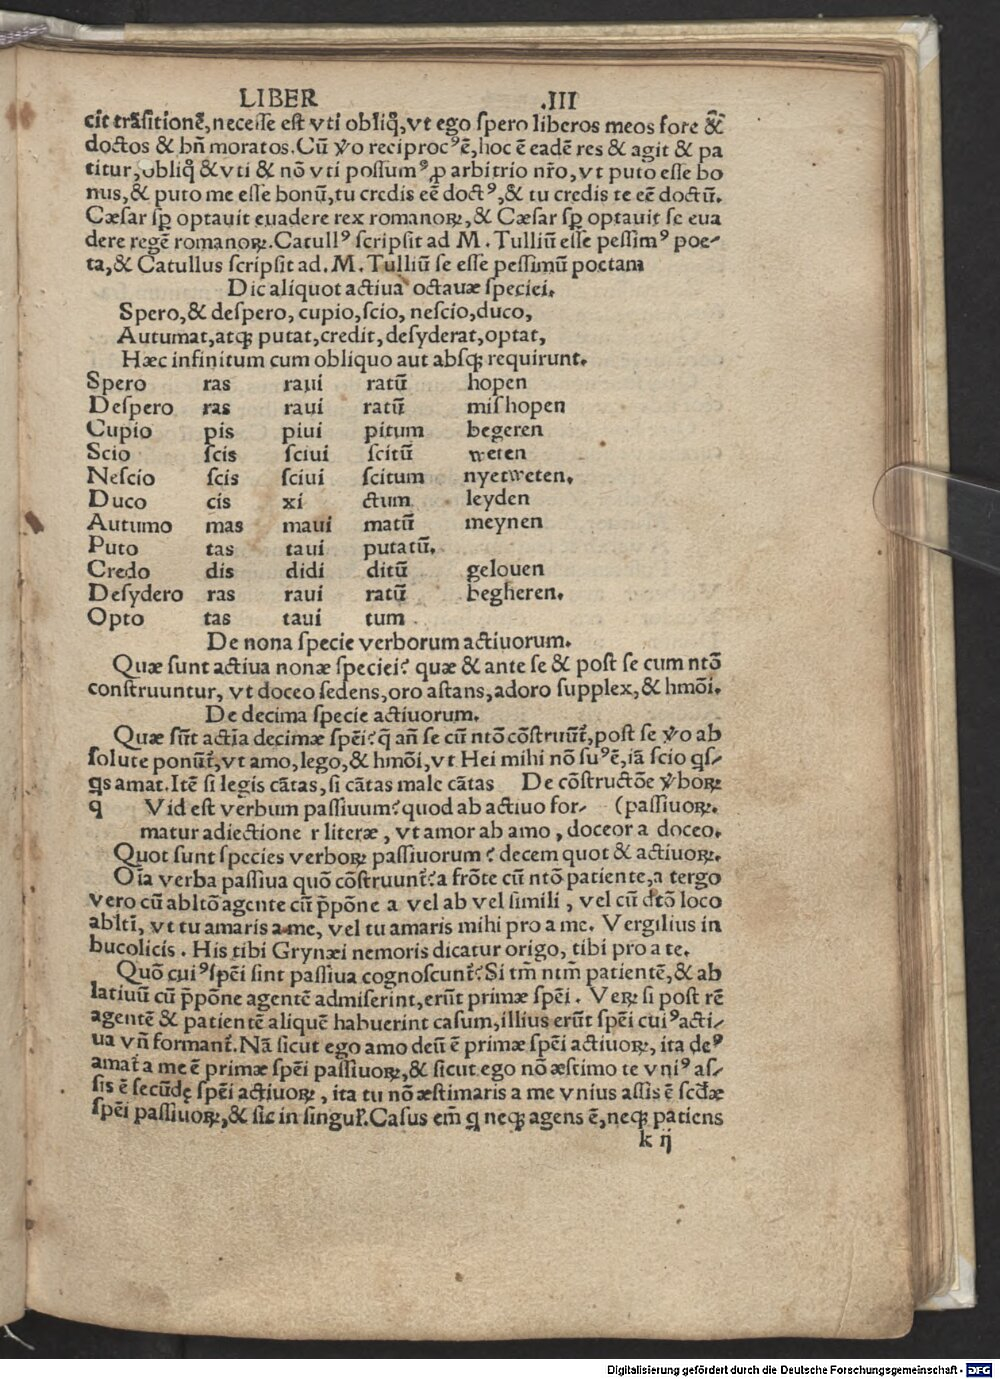 LIBER .III
cit trãſitionẽ, neceſſe eſt vti obliq̃, vt ego ſpero liberos meos fore &
doctos & bñ moratos. Cũ ꝟo reciprocꝰ ẽ, hoc ẽ eadẽ res & agit & pa
titur, obliq̃ & vti & nõ vti poſſumꝰ ꝓ arbitrio nr̃o, vt puto eſſe bo
nus, & puto me eſſe bonũ, tu credis eẽ doctꝰ, & tu credis te eẽ doctũ.
Cæſar ſꝑ optauit euadere rex romanoꝝ, & Cæſar ſꝑ optauit ſe eua
dere regẽ romanoꝝ. Catullꝰ ſcripſit ad M. Tulliũ eſſe peſſimꝰ poe⸗
ta, & Catullus ſcripſit ad. M. Tulliũ ſe eſſe peſſimũ poetam
Dic aliquot actiua octauæ ſpeciei.
Spero, & deſpero, cupio, ſcio, neſcio, duco,
Autumat, atqꝫ putat, credit, deſyderat, optat,
Hæc infinitum cum obliquo aut abſqꝫ requirunt.
Spero ras raui ratũ hopen
Deſpero ras raui ratũ miſhopen
Cupio pis piui pitum begeren
Scio ſcis ſciui ſcitũ weten
Neſcio ſcis ſciui ſcitum nyetweten.
Duco cis xi ctum leyden
Autumo mas maui matũ meynen
Puto tas taui putatũ.
Credo dis didi ditũ gelouen
Deſydero ras raui ratũ begheren.
Opto tas taui tum
De nona ſpecie verborum actiuorum.
Quæ ſunt actiua nonæ ſpeciei? quæ & ante ſe & poſt ſe cum ntõ
conſtruuntur, vt doceo ſedens, oro aſtans, adoro ſupplex, & hmõi.
De decima ſpecie actiuorum.
Quæ ſũt actĩa decimæ ſpẽi? q̃ añ ſe cũ ntõ cõſtruũt̃, poſt ſe ꝟo ab
ſolute ponũt̃, vt amo, lego, & hmõi, vt Hei mihi nõ ſuꝰ ẽ, iã ſcio qͥſ⸗
qͥs amat. Itẽ ſi legis cãtas, ſi cãtas male cãtas De cõſtructõe ꝟboꝝ
q Vid eſt verbum paſſiuum? quod ab actiuo for⸗ (paſſiuoꝝ.
matur adiectione r literæ, vt amor ab amo, doceor a doceo.
Quot ſunt ſpecies verboꝝ paſſiuorum? decem quot & actiuoꝝ.
Oĩa verba paſſiua quõ cõſtruunt̃? a frõte cũ ntõ patiente, a tergo
vero cũ abltõ agente cũ p̃põne a vel ab vel ſimili, vel cũ dtõ loco
abltĩ, vt tu amaris a me, vel tu amaris mihi pro a me. Vergilius in
bucolicis. His tibi Grynæi nemoris dicatur origo, tibi pro a te.
Quõ cuiꝰ ſpẽi ſint paſſiua cognoſcunt̃? Si tm̃ ntm̃ patientẽ, & ab
latiuũ cũ p̃põne agentẽ admiſerint, erũt primæ ſpẽi. Veꝝ ſi poſt rẽ
agentẽ & patientẽ aliquẽ habuerint caſum, illius erũt ſpẽi cuiꝰ acti⸗
ua vñ formant̃. Nã ſicut ego amo deũ ẽ primæ ſpẽi actiuoꝝ, ita deꝰ
amat̃ a me ẽ primæ ſpẽi paſſiuoꝝ, & ſicut ego nõ æſtimo te vniꝰ aſ⸗
ſis ẽ ſecũdę ſpẽi actiuoꝝ, ita tu nõ æſtimaris a me vnius aſſis ẽ ſcďæ
ſpẽi paſſiuoꝝ, & ſic in ſingul̃. Caſus em̃ ꝗ neqꝫ agens ẽ, neqꝫ patiens
k ij
Digitalisierung gefördert durch die Deutsche Forschungsgemeinschaft - DFG